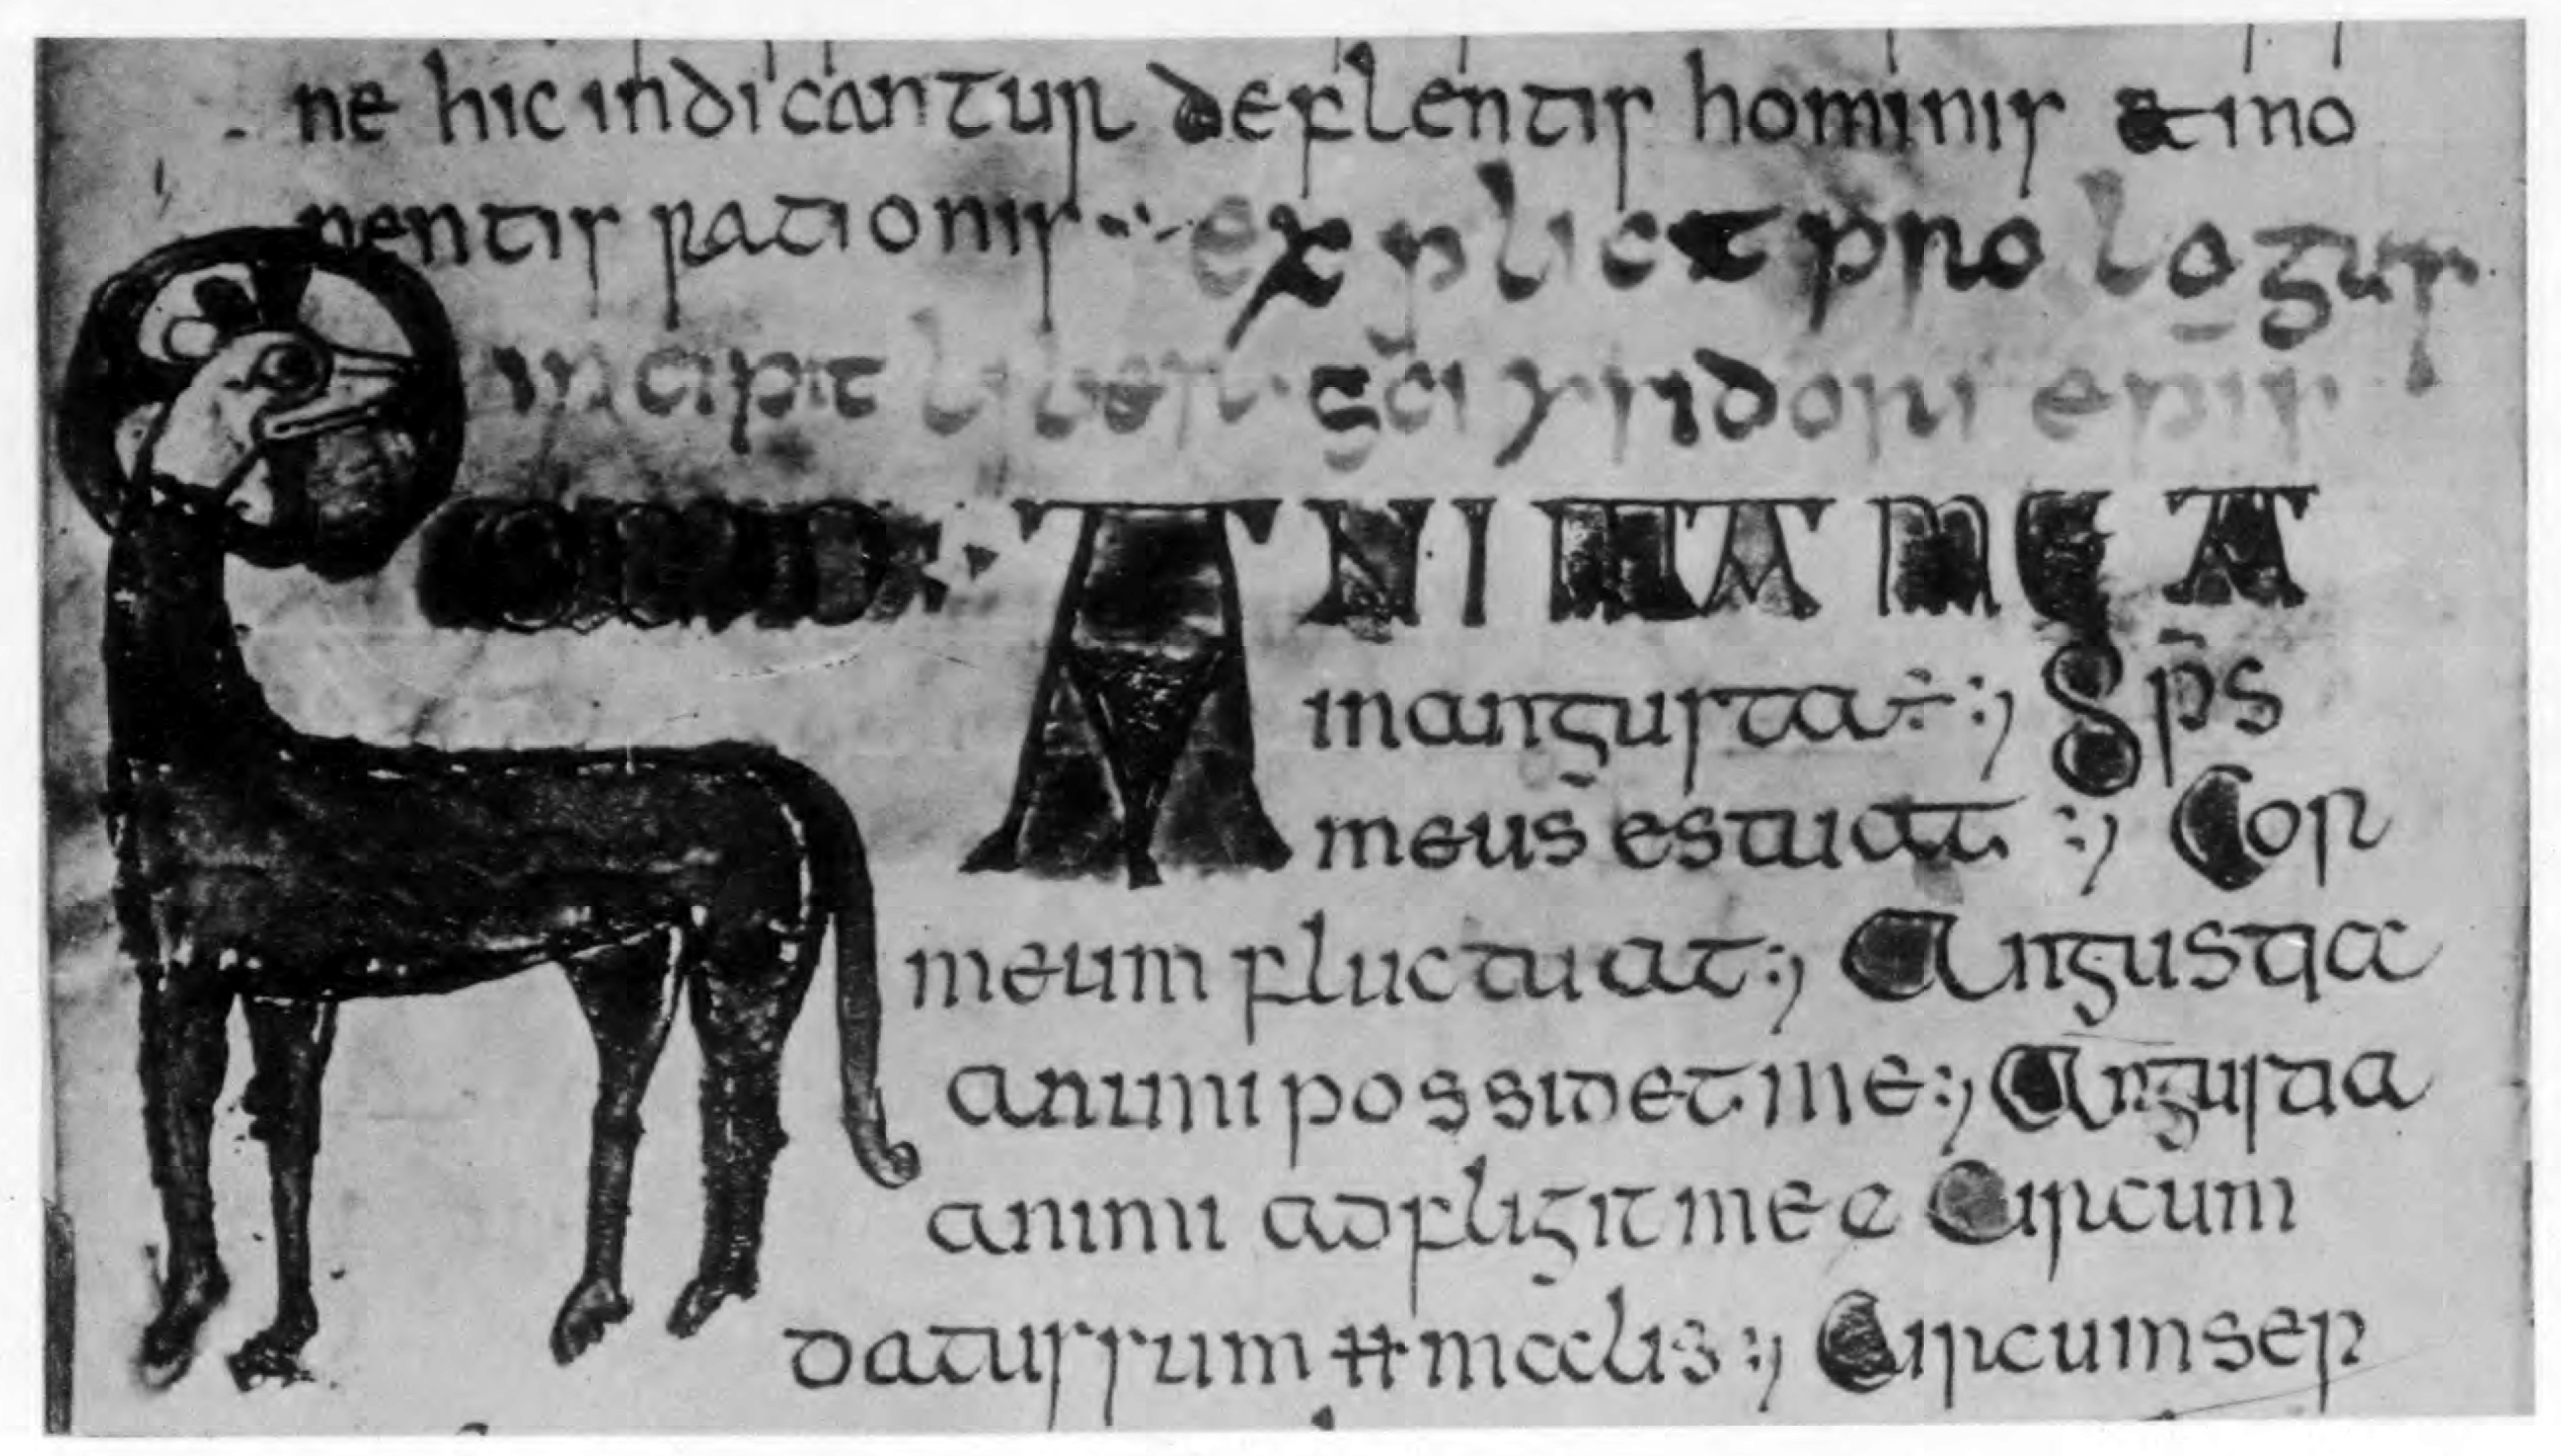 ne hic indicantur deflentis hominis & mo
nentis rationis explict prologus
incipit liber sc̄i ysidori epis
ANIMA MEA
in angusta ÷ :, Sp̄s
meus estuat :, Cor
meum fluctuat :, Angustia
animi possidet me :, Angustia
animi adfligit me e Circum
datus sum ++ malis :, Circumsep